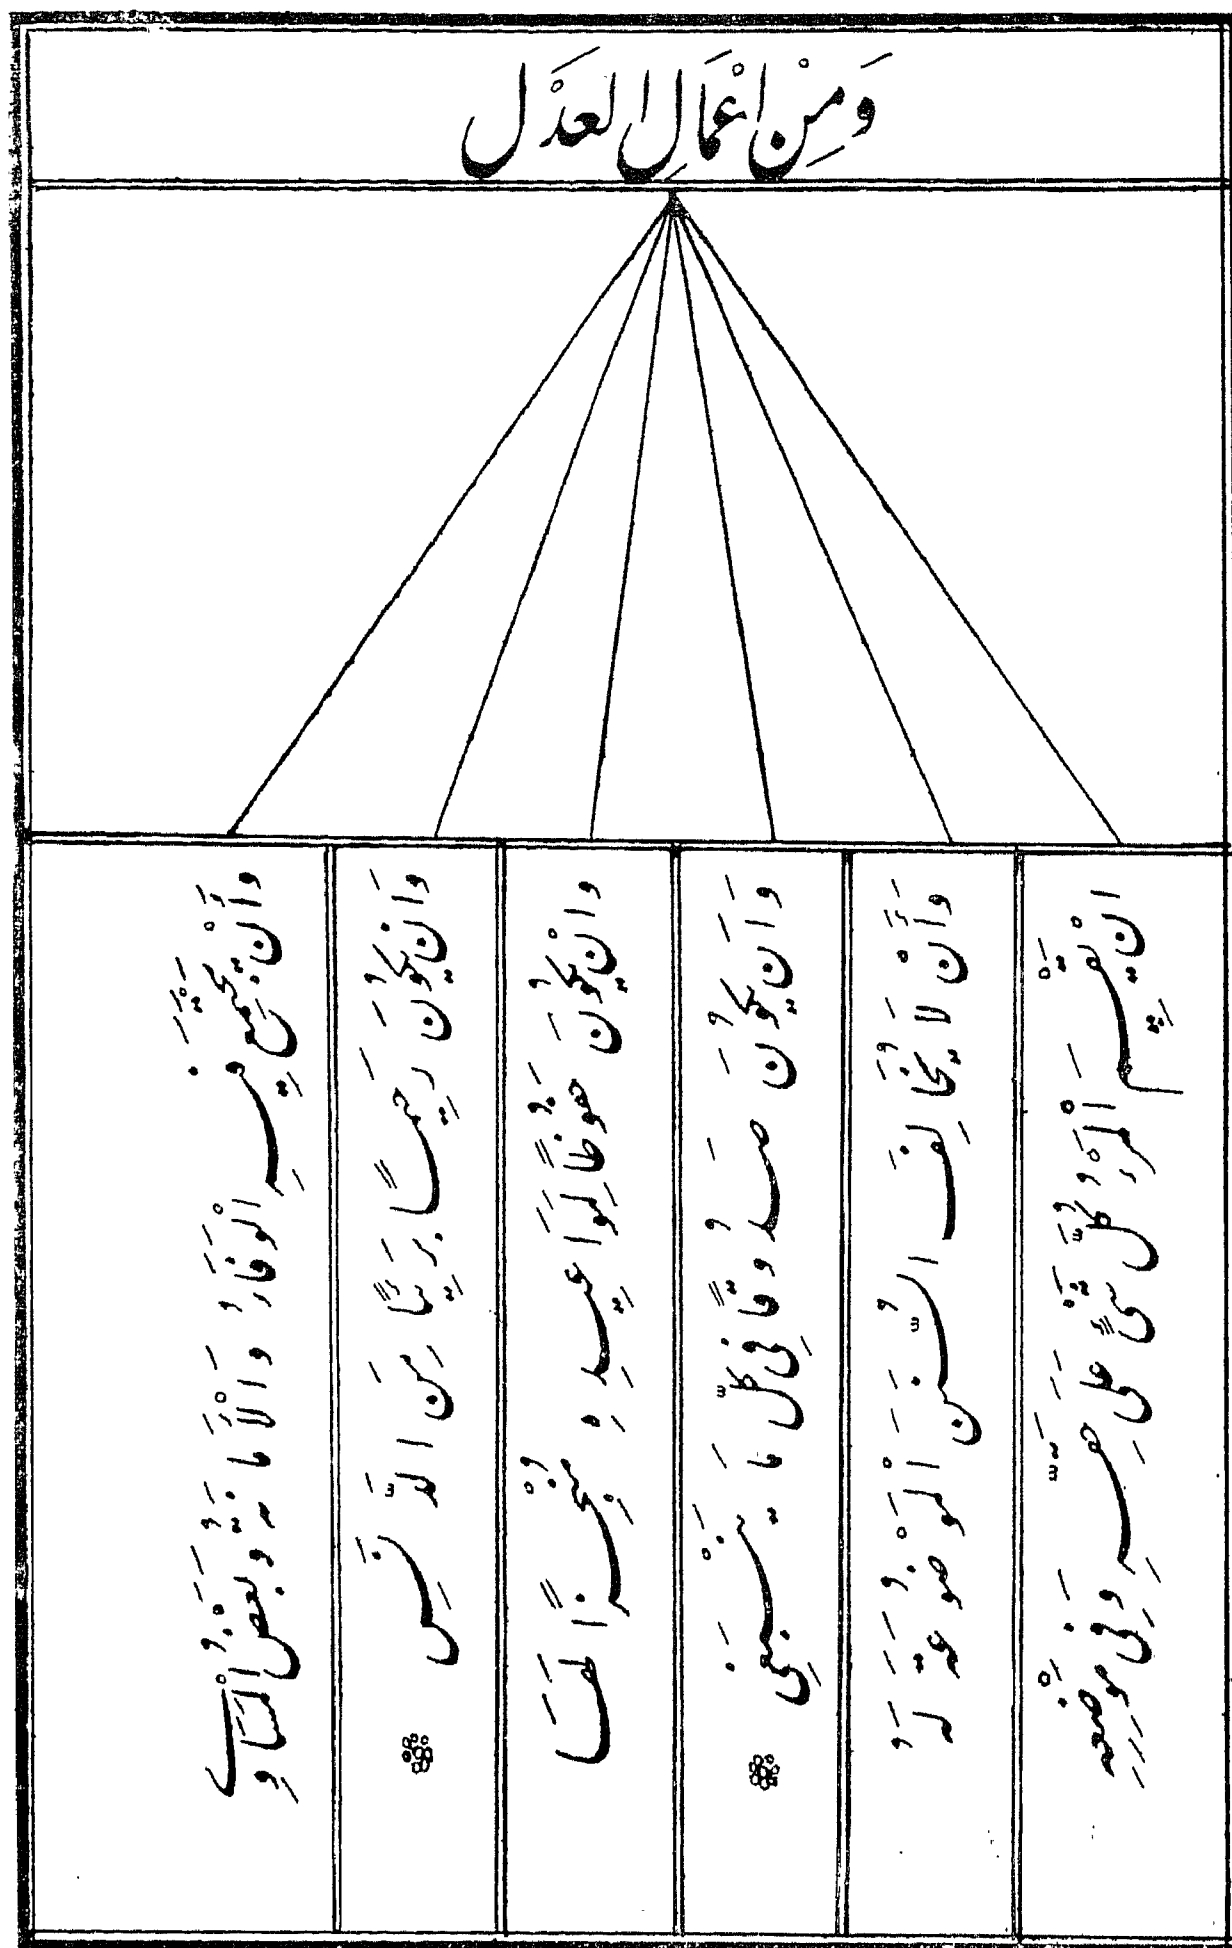 وَمِنْ اَعْمَالِ العَدْل
ان يُقِيمَ اَلْمَرْءُ كُلَّ شَيْءٍ عَلَى وَفِي مَوْضِعِهِ
وَأَنْ لَا يُخَالِفَ السُّنَنَ اَلْمَوْضُوعَةَ لَهُ
وَاَن يَكُونَ صَدُوقًا فِي كُلّ مَا يَنْبَغِي
وانْ يَكُونَ حَفُوظًا لِمَوَاعِيدِهِ مُنْجِزًا لَهَا
وَاَن يَكُونَ رَحِيمًا بَرِيئًا مِنَ الدَّنَسِ
وَأَنْ يَجْتَمِعَ فِيهِ الْوَقَارُ وَالْأَمَانَةُ وَبُغْضُ الْمَسَاوِي